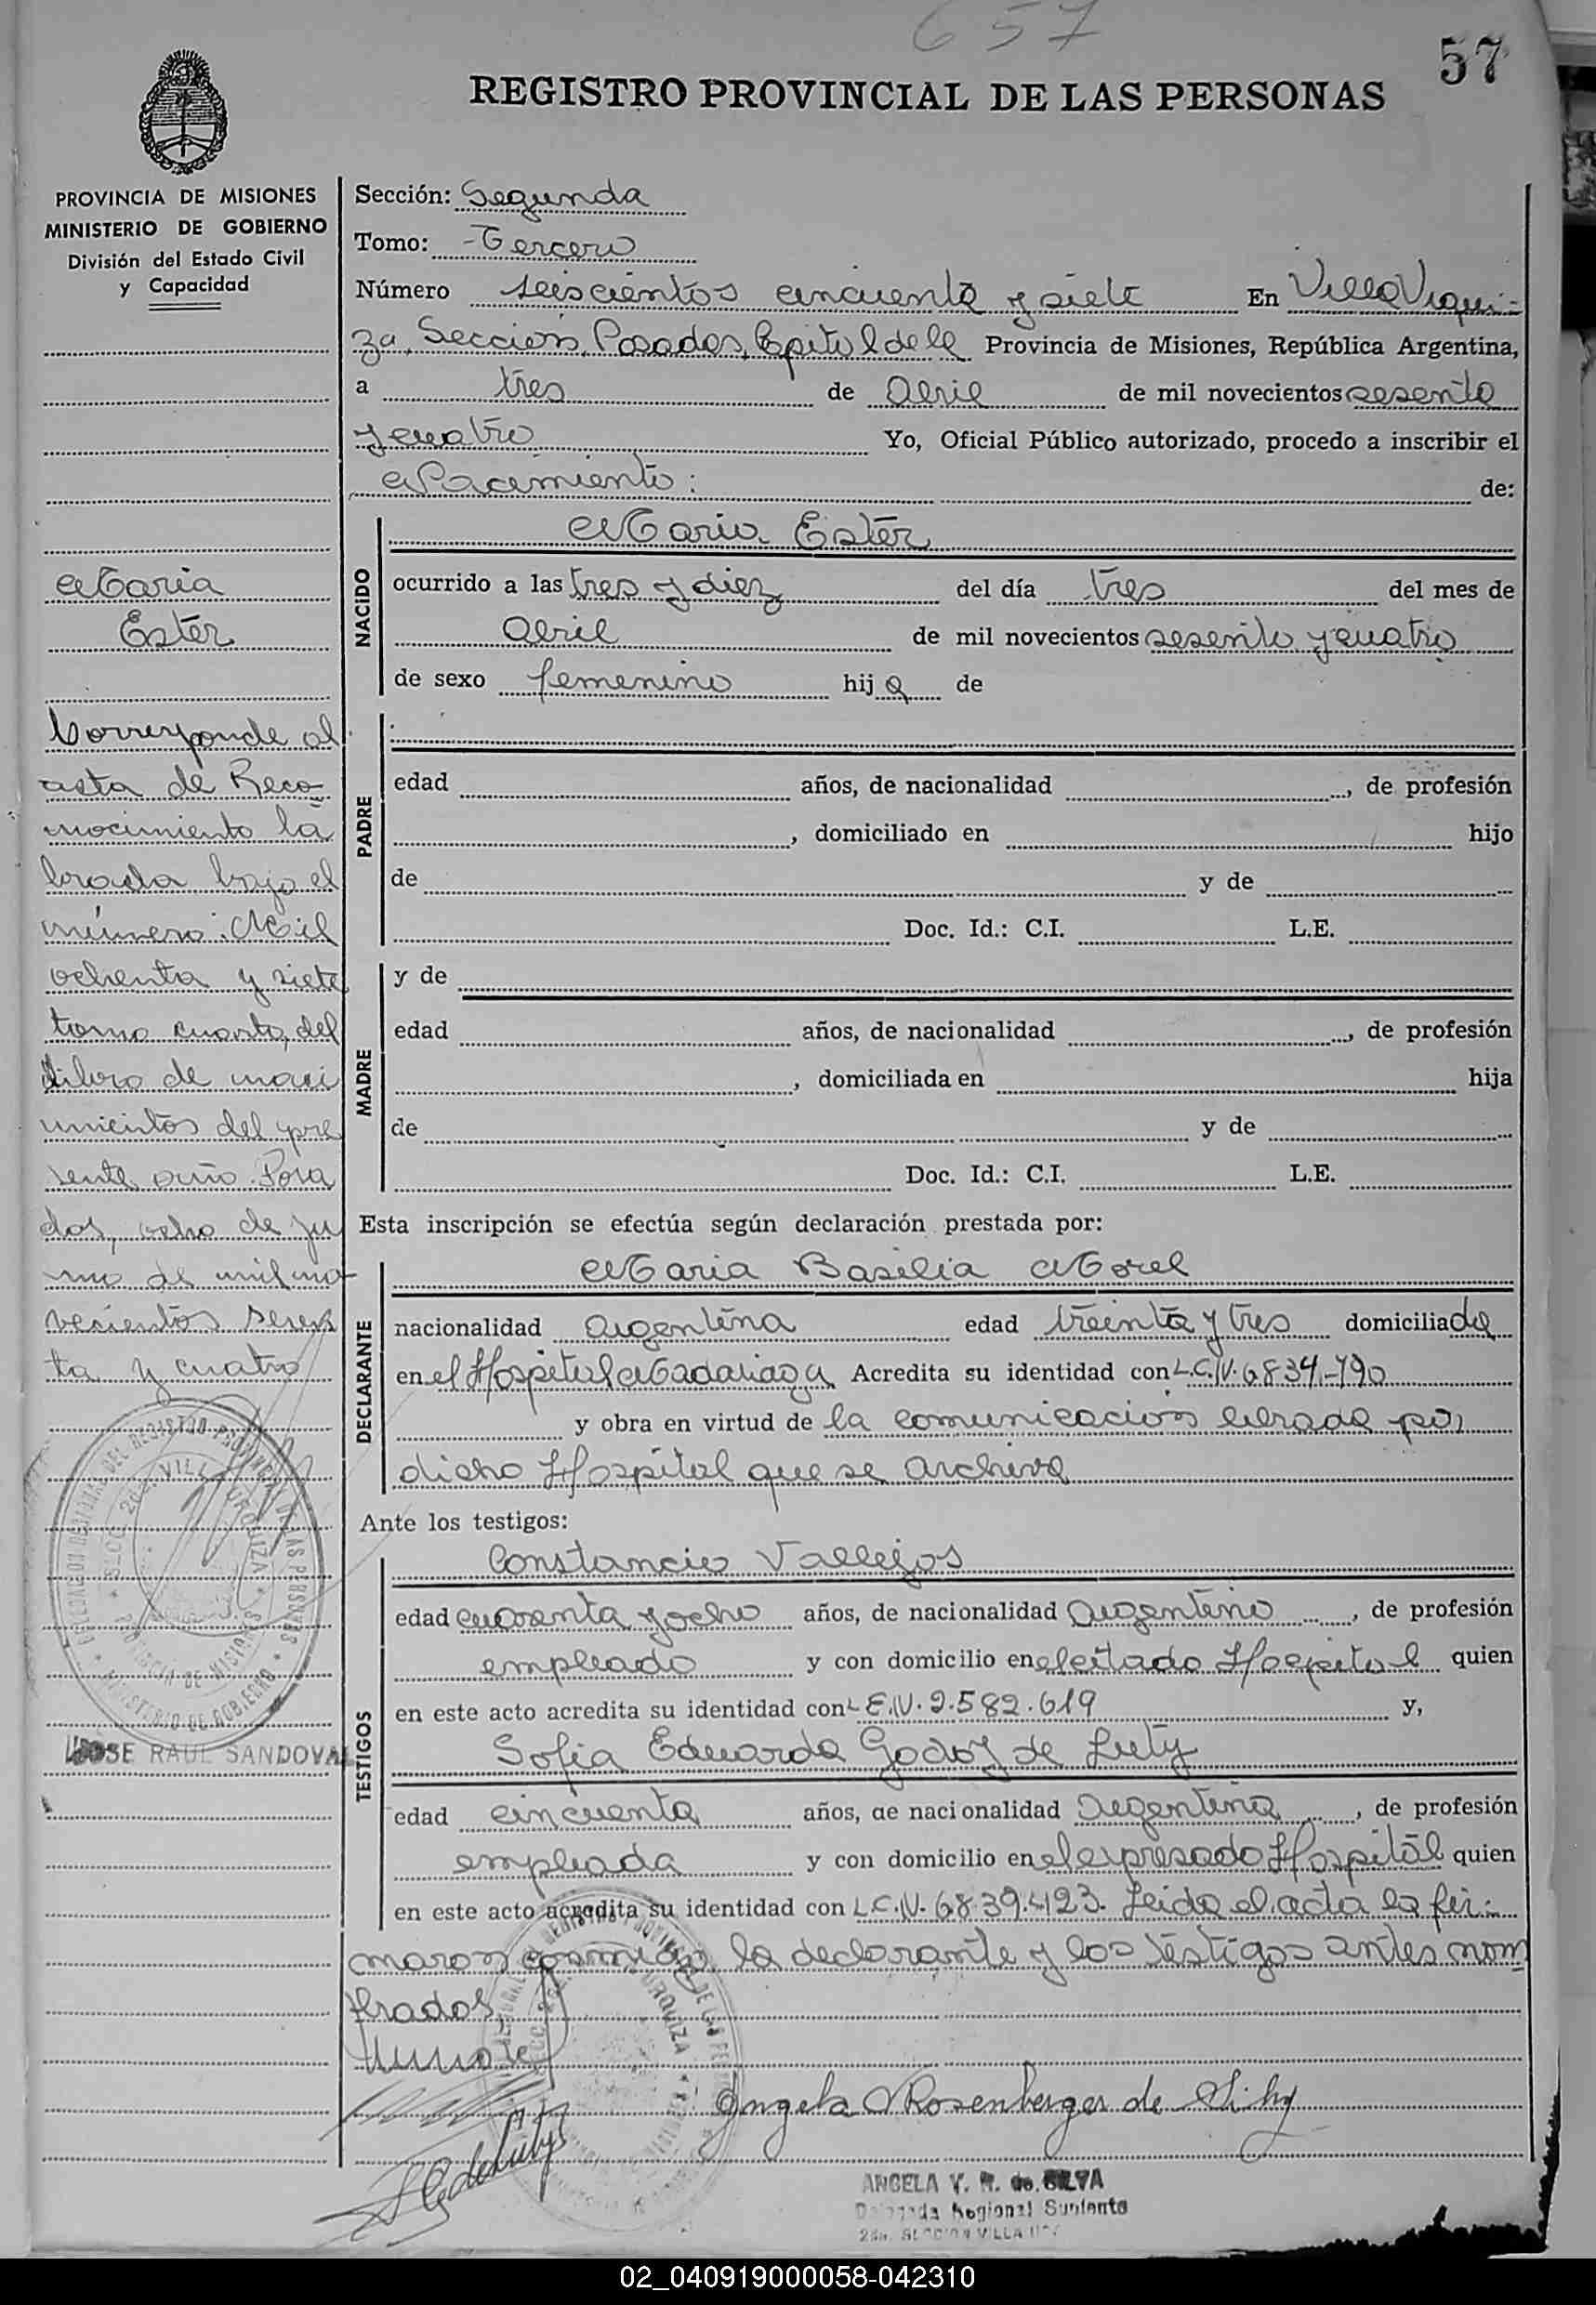 657
57
REGISTRO PROVINCIAL DE LAS PERSONAS
PROVINCIA DE MISIONES
MINISTERIO DE GOBIERNO
División del Estado Civil
y Capacidad
Sección: Segunda
Tomo: Tercero
Número seiscientos cincuenta y siete En Villa Urqui-
za, Sección, Posadas, Capital de la Provincia de Misiones, República Argentina,
a tres de Abril de mil novecientos sesenta
y cuatro Yo, Oficial Público autorizado, procedo a inscribir el
Nacimiento: de:
Maria
Ester
Corresponde al
acta de Reco-
nocimiento la
brada bajo el
número: Mil
ochenta y siete
tomo cuarto, del
libro de naci
mientos del pre
sente año. Posa
das, ocho de ju
nio de mil no-
vecientos sesen
ta y cuatro
DELEGACION REGIONAL DEL REGISTRO PROVINCIAL DE LAS PERSONAS
SECC. 2da. VILLA URQUIZA
PROVINCIA DE MISIONES
MINISTERIO DE GOBIERNO
JOSE RAUL SANDOVAL
NACIDO
Maria Ester
ocurrido a las tres y diez del día tres del mes de
Abril de mil novecientos sesenta y cuatro
de sexo femenino hija de
PADRE
edad años, de nacionalidad , de profesión
, domiciliado en hijo
de y de
Doc. Id.: C.I. L.E.
MADRE
y de
edad años, de nacionalidad , de profesión
, domiciliada en hija
de y de
Doc. Id.: C.I. L.E.
Esta inscripción se efectúa según declaración prestada por:
DECLARANTE
Maria Basilia Morel
nacionalidad argentina edad treinta y tres domiciliada
en el Hospital Madariaga Acredita su identidad con L.C.N. 6834.790
y obra en virtud de la comunicacion librada por
dicho Hospital que se archiva
Ante los testigos:
TESTIGOS
Constancio Vallejos
edad cuarenta y ocho años, de nacionalidad Argentino , de profesión
empleado y con domicilio en el citado Hospital quien
en este acto acredita su identidad con L.E.N. 2.582.619 y,
Sofia Eduarda Godoy de Luty
edad cincuenta años, de nacionalidad Argentina , de profesión
empleada y con domicilio en el expresado Hospital quien
en este acto acredita su identidad con L.C.N. 6839.423. Leida el acta la fir-
maron conmigo la declarante y los testigos antes nom
brados.
Angela Rosenberger de Silva
ANGELA V. R. de SILVA
Delegada Regional Suplente
2da. SECCION VILLA
02_040919000058-042310